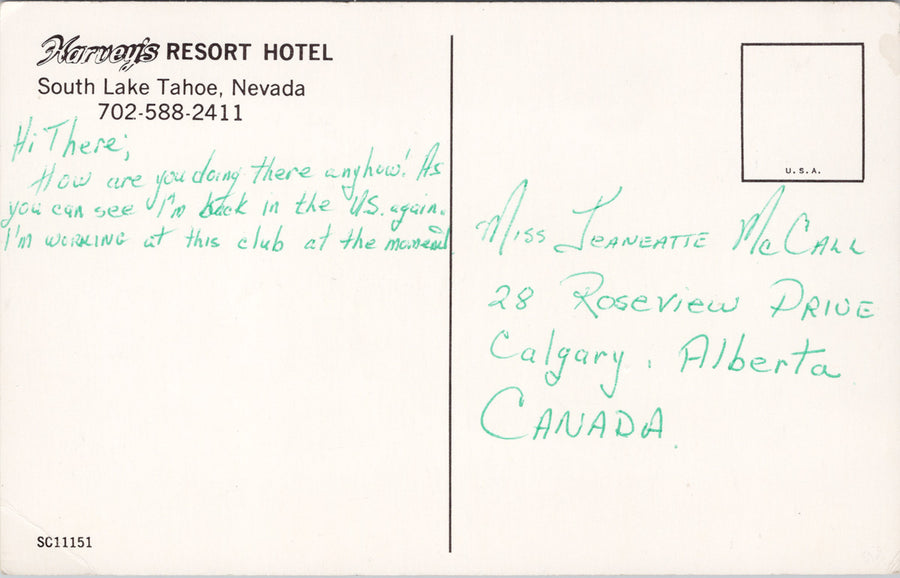 Harvey's RESORT HOTEL
South Lake Tahoe, Nevada
702-588-2411
Hi There;
How are you doing there anyhow! As
you can see I'm back in the US. again.
I'm working at this club at the moment
U.S.A.
Miss Jeaneatte McCall
28 Roseview Drive
Calgary. Alberta
CANADA.
SC11151